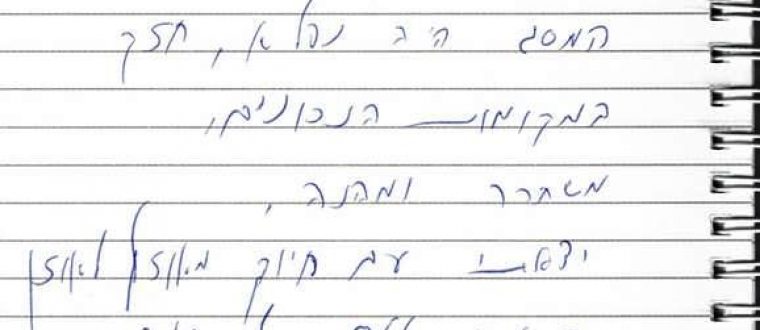 המסג היה נפלא, חזק
במקומות הנכונים,
משחרר ומהנה,
יצאתי עם חיוך מאוזן לאוזן